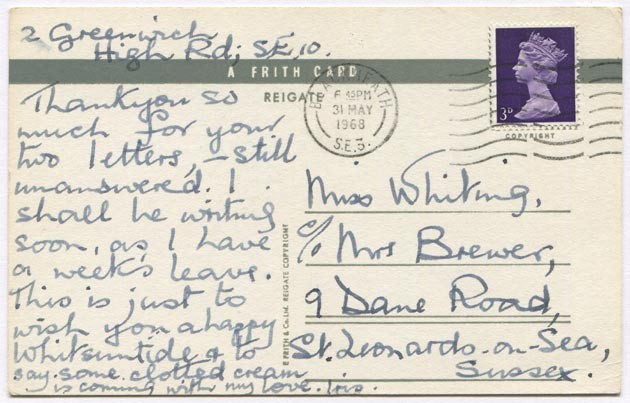 2 Greenwich
High Rd; S.E.10.
A FRITH CARD
REIGATE
Thankyou so
much for your
two letters, – still
unanswered. I
shall be writing
soon, as I have
a week's leave.
This is just to
wish you a happy
Whitsuntide & to
say some clotted cream
is coming with my love. Iris.
BLACKHEATH
6 45PM
31 MAY
1968
S.E.3.
3D
COPYRIGHT
Miss Whiting,
c/o Mrs Brewer,
9 Dane Road,
St. Leonards-on-Sea,
Sussex.
F. FRITH & Co. Ltd. REIGATE COPYRIGHT